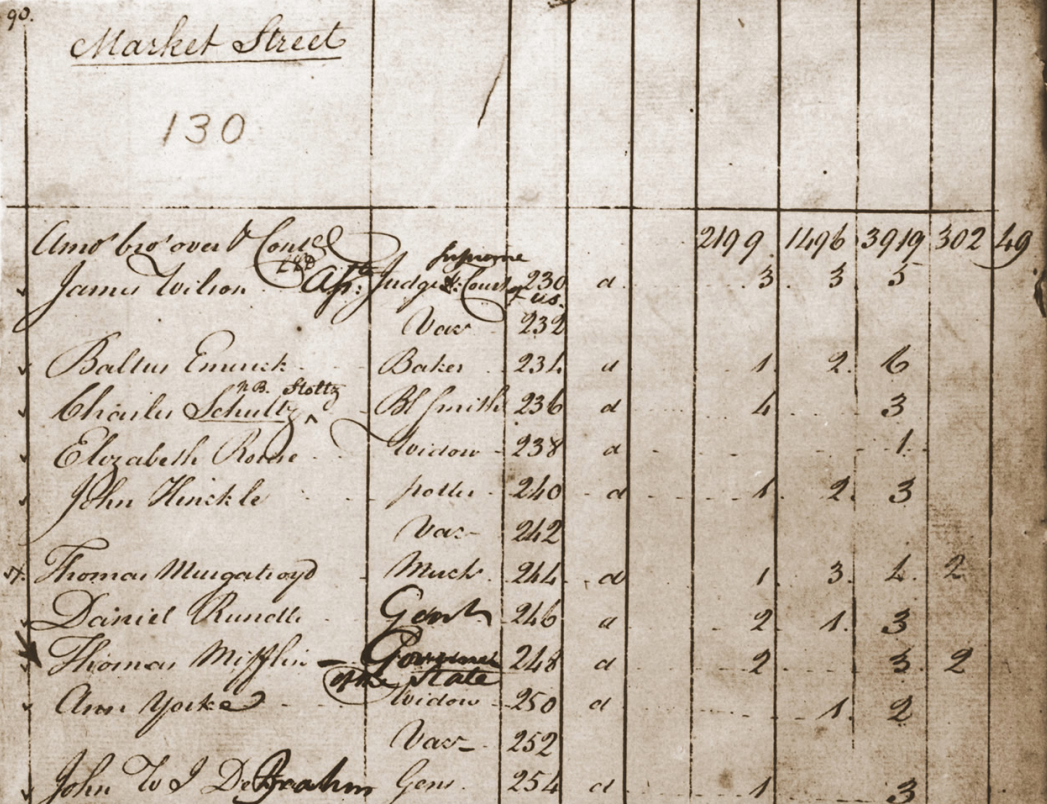 90.
Market Street
130
Amo't bro't over 2199 1496 3919 302 49
Supreme
James Wilson Judge Court 230 d 3 3 5
of US.
Vac 232
Baltus Emrick Baker 234 d 1 2 6
N.B. Stoltz
Charles Schultz Bl Smith 236 d 4 3
Elizabeth Rowe Widow 238 d 1
John Hinckle potter 240 d 1 2 3
Vac 242
Thomas Murgatroyd March 244 d 1 3 4 2
Daniel Rundle Gent 246 d 2 1 3
Thomas Mifflin Governor 248 d 2 3 2
of the State
Ann Yorke Widow 250 d 1 2
Vac 252
John W I De Brahm Gent 254 d 1 3